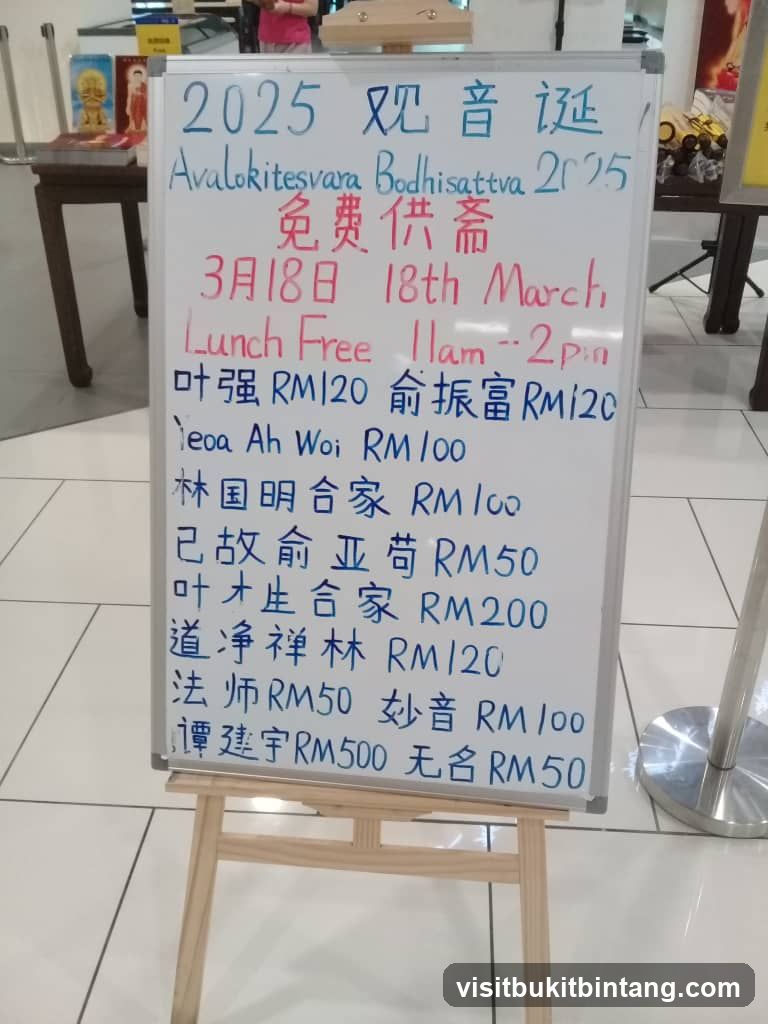 2025 观音诞
Avalokitesvara Bodhisattva 2025
免费供斋
3月18日 18th March
Lunch Free 11am -- 2pm
叶强 RM120 俞振富 RM120
Yeoa Ah Woi RM100
林国明合家 RM100
已故俞亚苟 RM50
叶才生合家 RM200
道净禅林 RM120
法师 RM50 妙音 RM100
谭建宇 RM500 无名 RM50
visitbukitbintang.com